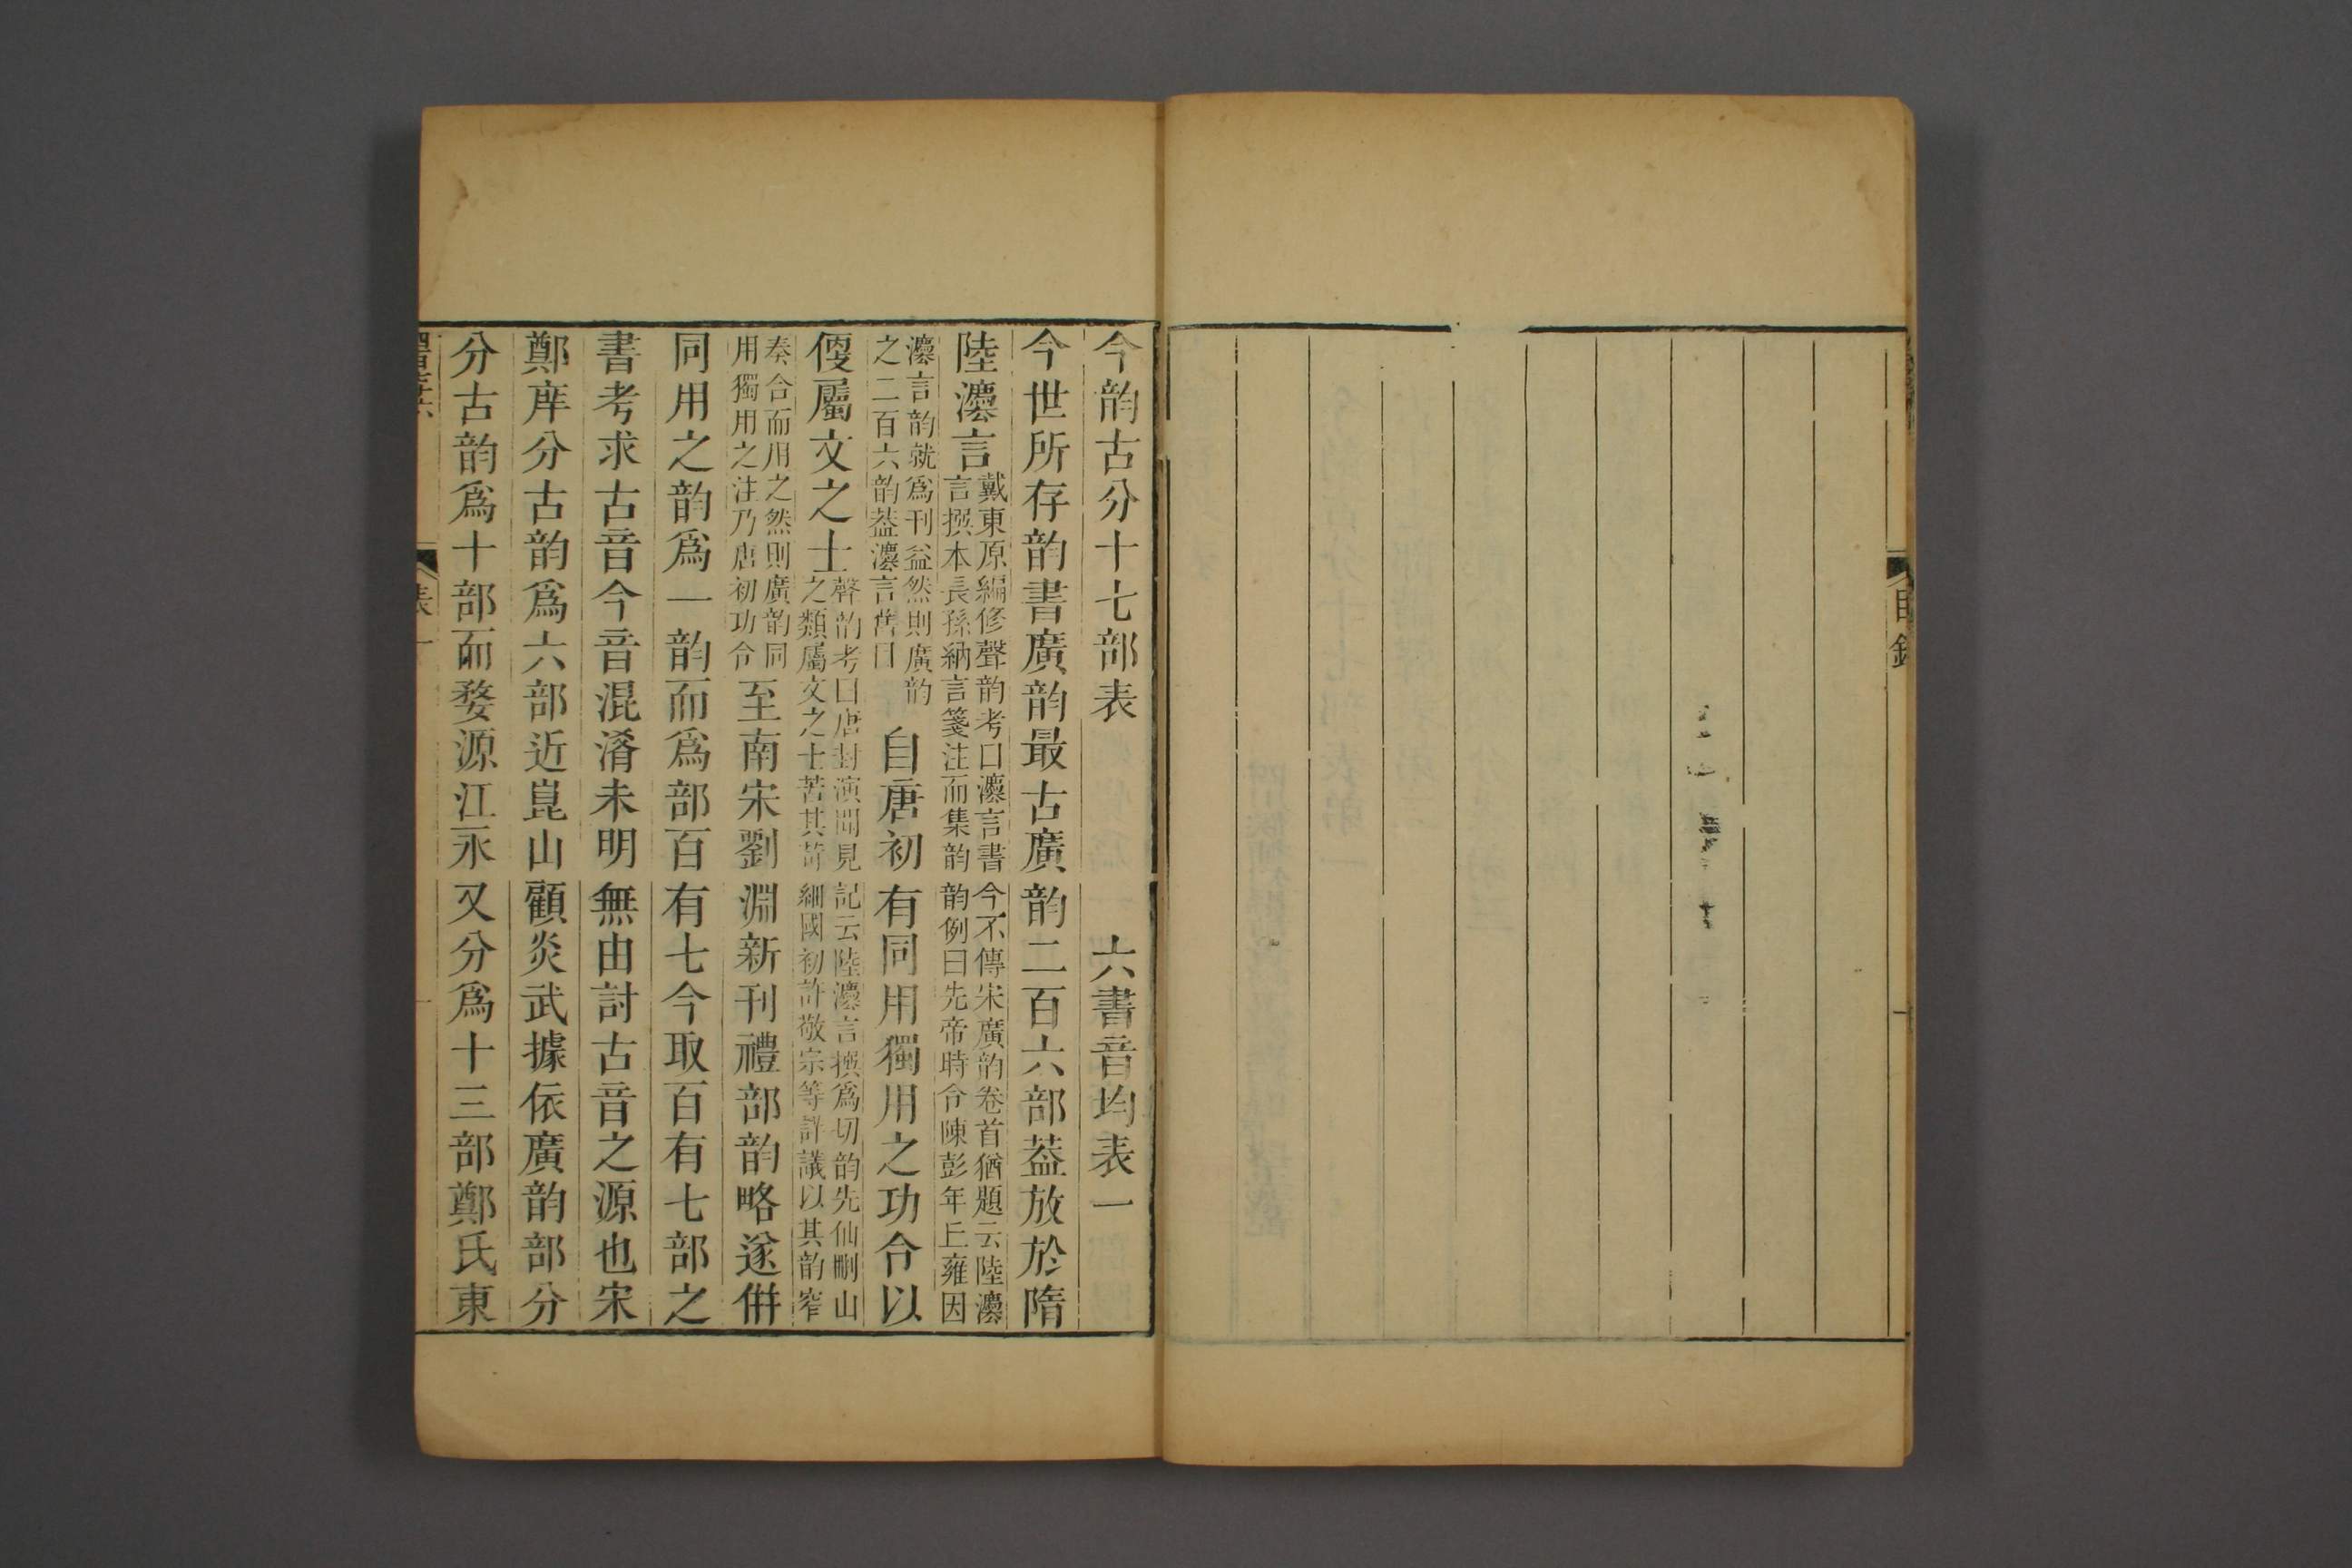 目錄
今韵古分十七部表　六書音均表一
今世所存韵書廣韵最古廣韵二百六部葢放於隋
陸灋言戴東原編修聲韵考曰灋言書今不傳宋廣韵卷首猶題云陸灋
言撰本長孫納言箋注而集韵韵例曰先帝時令陳彭年丘雍因
灋言韵就爲刊益然則廣韵
之二百六韵葢灋言舊目自唐初有同用獨用之功令以
便屬文之士聲韵考曰唐封演聞見記云陸灋言撰爲切韵先仙刪山
之類屬文之士苦其苛細國初許敬宗等詳議以其韵窄
奏合而用之然則廣韵同
用獨用之注乃唐初功令至南宋劉淵新刊禮部韵略遂併
同用之韵爲一韵而爲部百有七今取百有七部之
書考求古音今音混淆未明無由討古音之源也宋
鄭庠分古韵爲六部近崑山顧炎武據依廣韵部分
分古韵爲十部而婺源江永又分爲十三部鄭氏東
表一